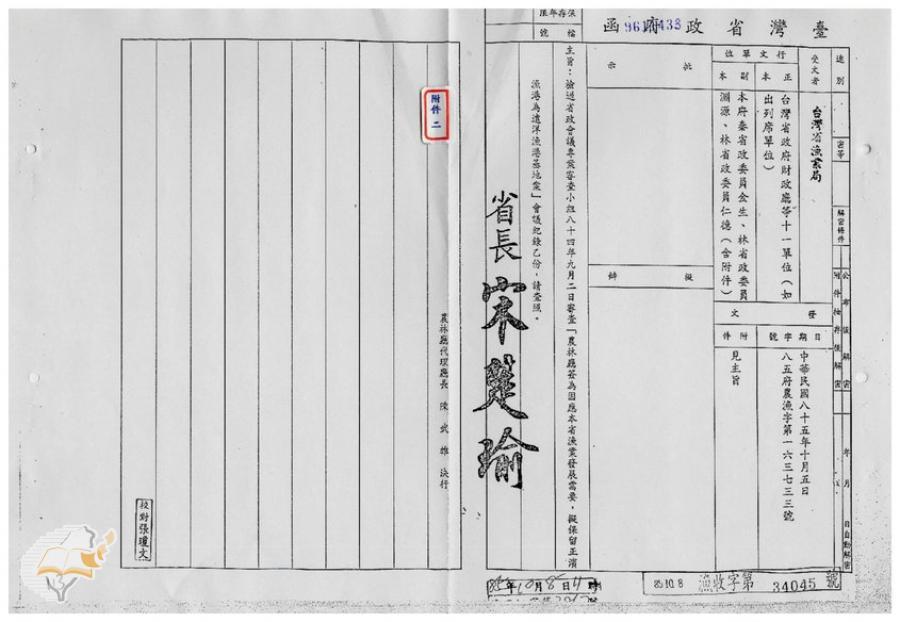 臺灣省政府函
保存年限
檔號
速別
密等
解密條件
公布後解密
附件抽存後解密
年 月 日自動解密
受文者
台灣省漁業局
行文單位
正本
台灣省政府財政廳等十一單位（如
出列席單位）
副本
本府秦省政委員金生、林省政委員
淵源、林省政委員仁德（含附件）
發文
日期
中華民國八十五年十月五日
字號
八五府農漁字第一六三七三三號
附件
見主旨
批示
擬辦
主旨：檢送省政會議專案審查小組八十四年九月二日審查「農林廳簽為因應本省漁業發展需要，擬保留正濱
漁港為遠洋漁港基地案」會議紀錄乙份，請查照。
省長 宋楚瑜
農林廳代理廳長 陳武雄 決行
附件二
校對張瓊文
85.10.8 漁收字第 34045 號